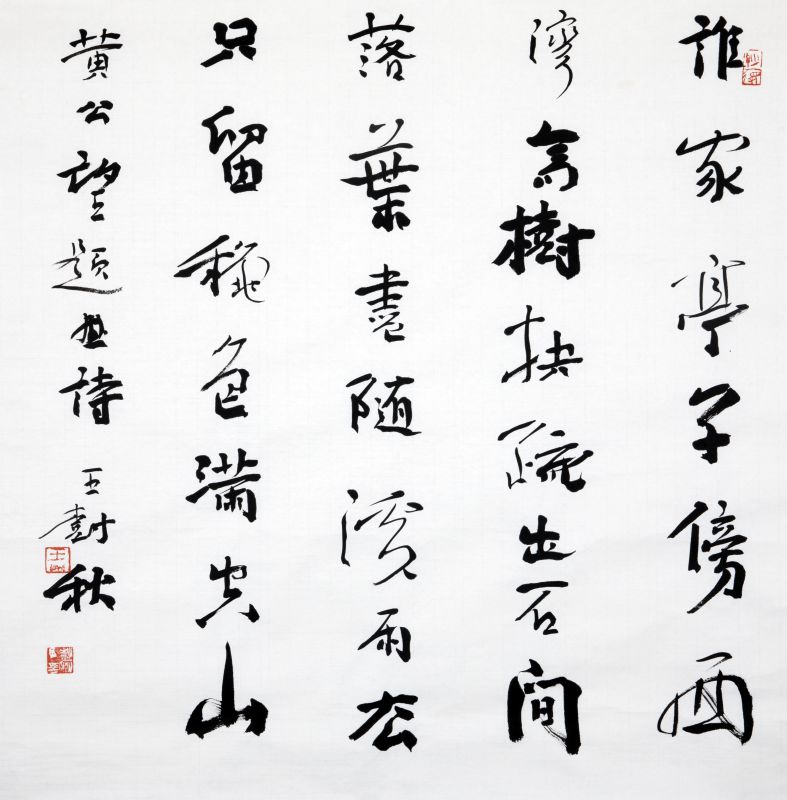 誰家亭子傍西
灣高樹扶疏出石間
落葉盡隨溪雨去
只留穐色滿空山
黄公望題画詩 王樹秋